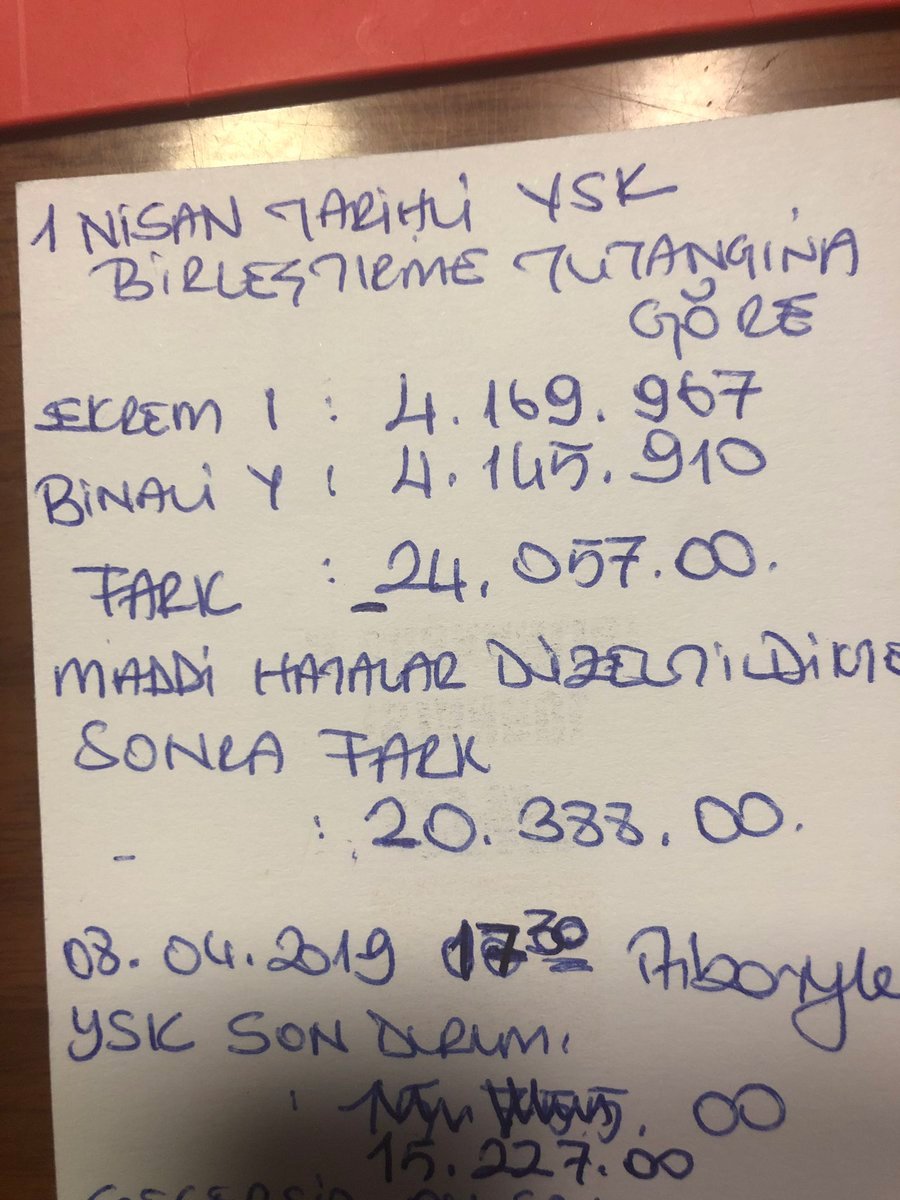 1 NİSAN TARİHLİ YSK
BİRLEŞTİRME TUTANGINA
GÖRE
EKREM I : 4.169.967
BİNALİ Y : 4.145.910
FARK : 24.057.00.
MADDİ HATALAR DÜZELTİLDİKTE
SONRA FARK
: 20.388.00.
08.04.2019 17 30 İtibariyle
YSK SON DURUM
: 00
15.227.00